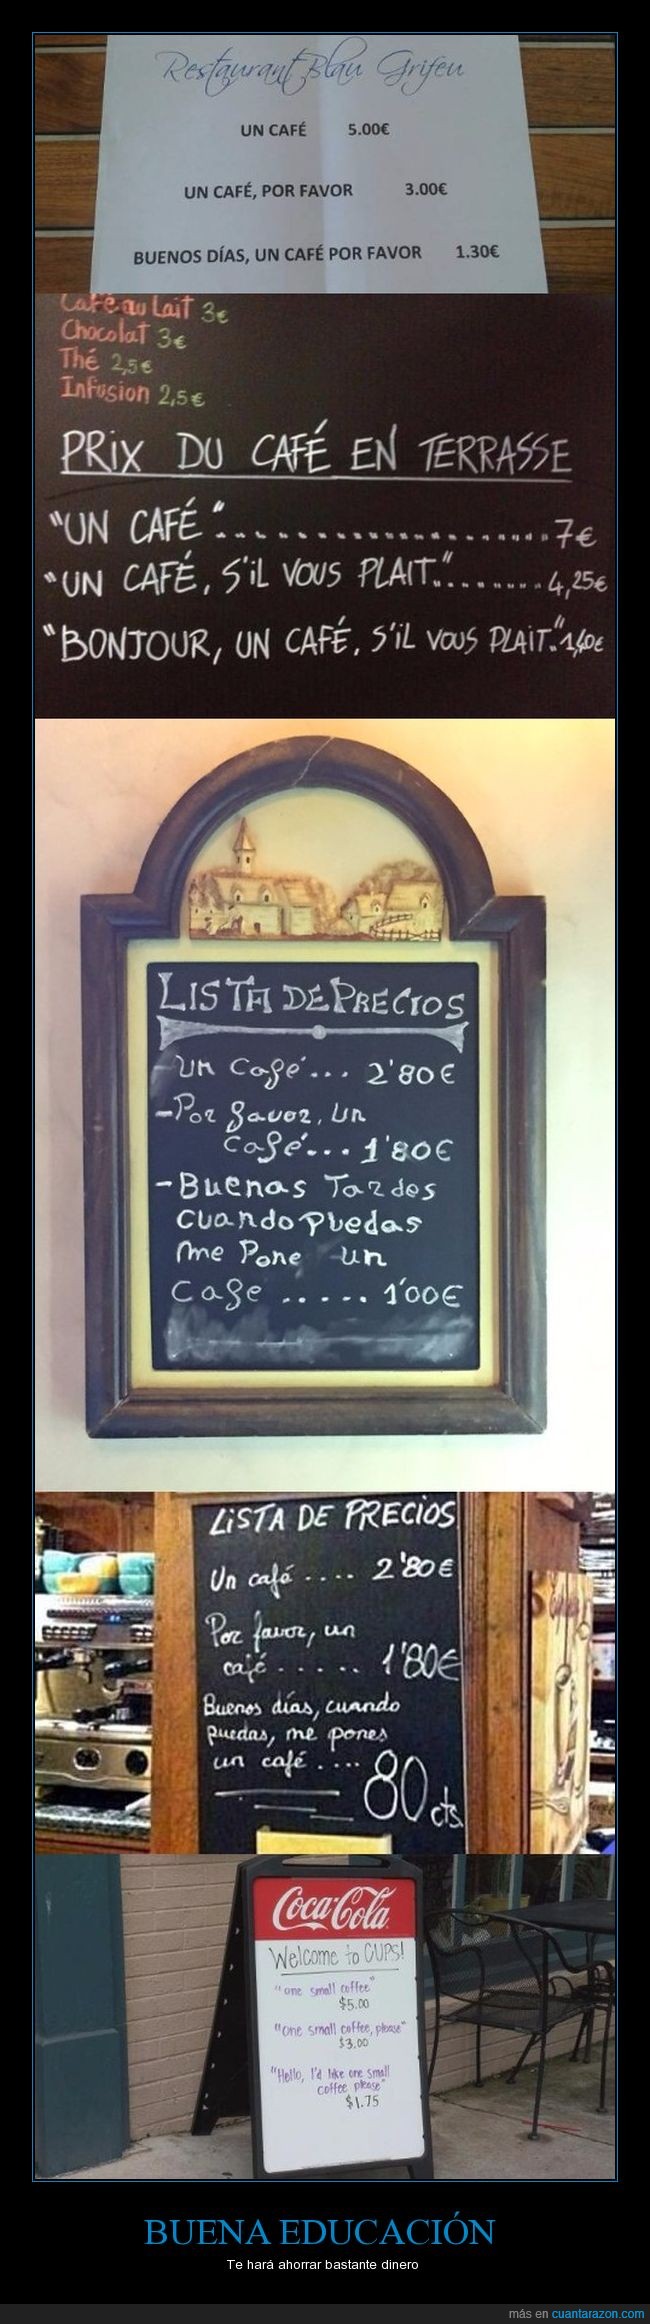 Restaurant Blau Grifeu
UN CAFÉ 5.00€
UN CAFÉ, POR FAVOR 3.00€
BUENOS DÍAS, UN CAFÉ POR FAVOR 1.30€
Café au Lait 3€
Chocolat 3€
Thé 2,5€
Infusion 2,5€
PRIX DU CAFÉ EN TERRASSE
"UN CAFÉ"........................7€
"UN CAFÉ, S'iL VOUS PLAIT."........4,25€
"BONJOUR, UN CAFÉ, S'iL VOUS PLAIT."1,40€
LISTA DE PRECIOS
-Un Café... 2'80€
-Por favor, un
café... 1'80€
-Buenas Tardes
cuando Puedas
me Pone un
Cafe ..... 1'00€
LiSTA DE PRECIOS
Un café .... 2'80€
Por favor, un
café ...... 1'80€
Buenos días, cuando
puedas, me pones
un café .... 80 cts.
Coca-Cola
Welcome to CUPS!
"one small coffee"
$5.00
"One small coffee, please"
$3.00
"Hello, I'd like one small
coffee please"
$1.75
BUENA EDUCACIÓN
Te hará ahorrar bastante dinero
más en cuantarazon.com